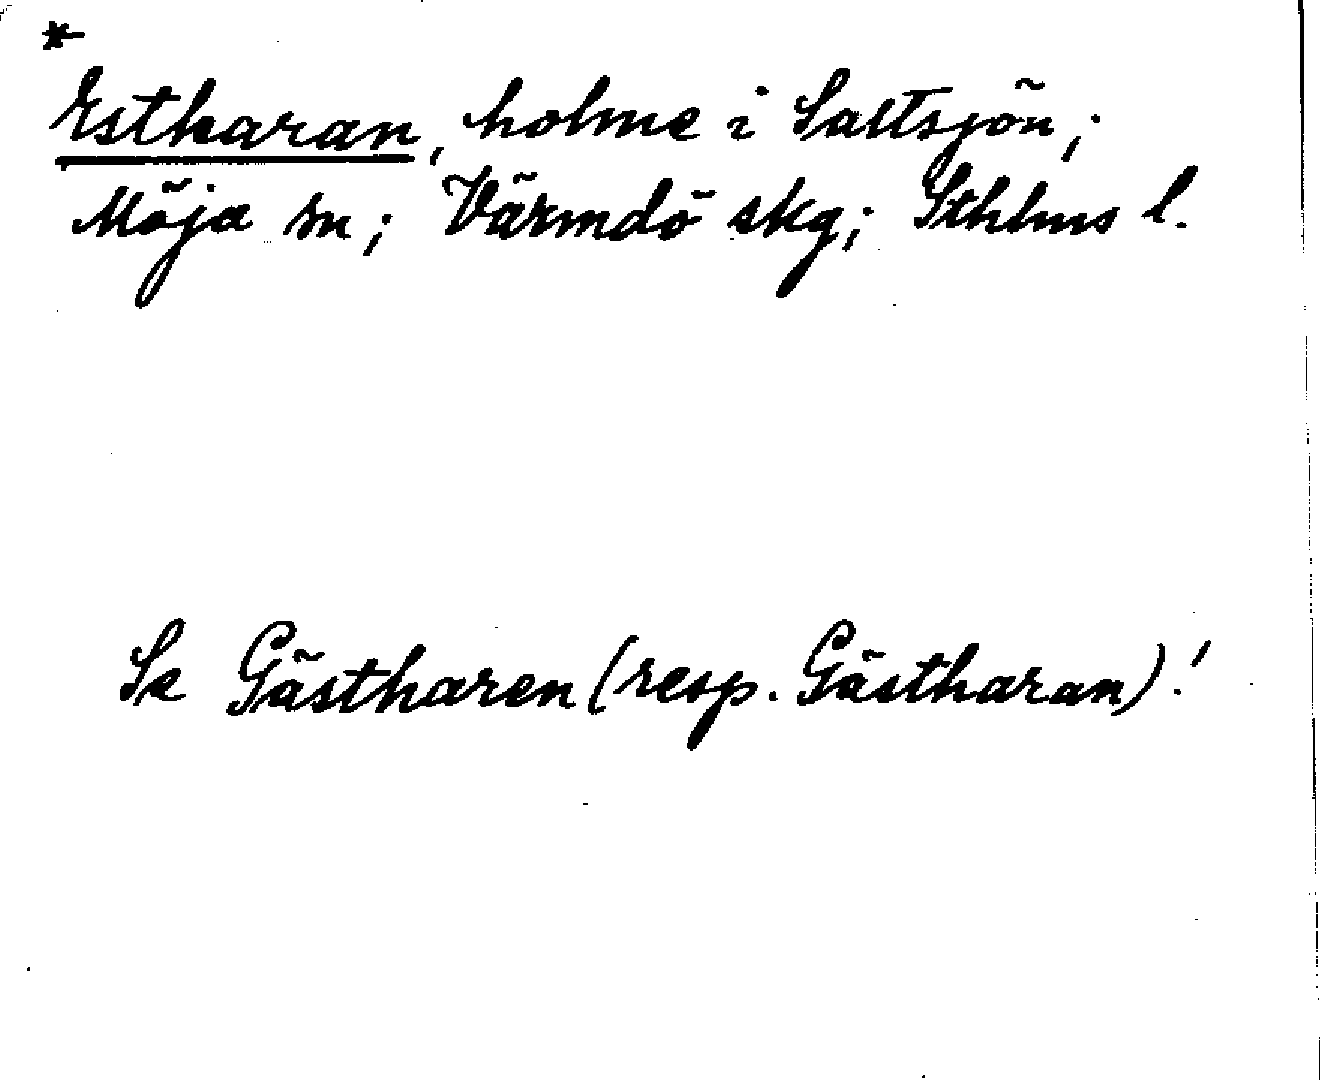 *
Estharan, holme i Saltsjön;
Möja sn; Värmdö skg; Sthlms l.
Se Gästharen (resp. Gästharan)!